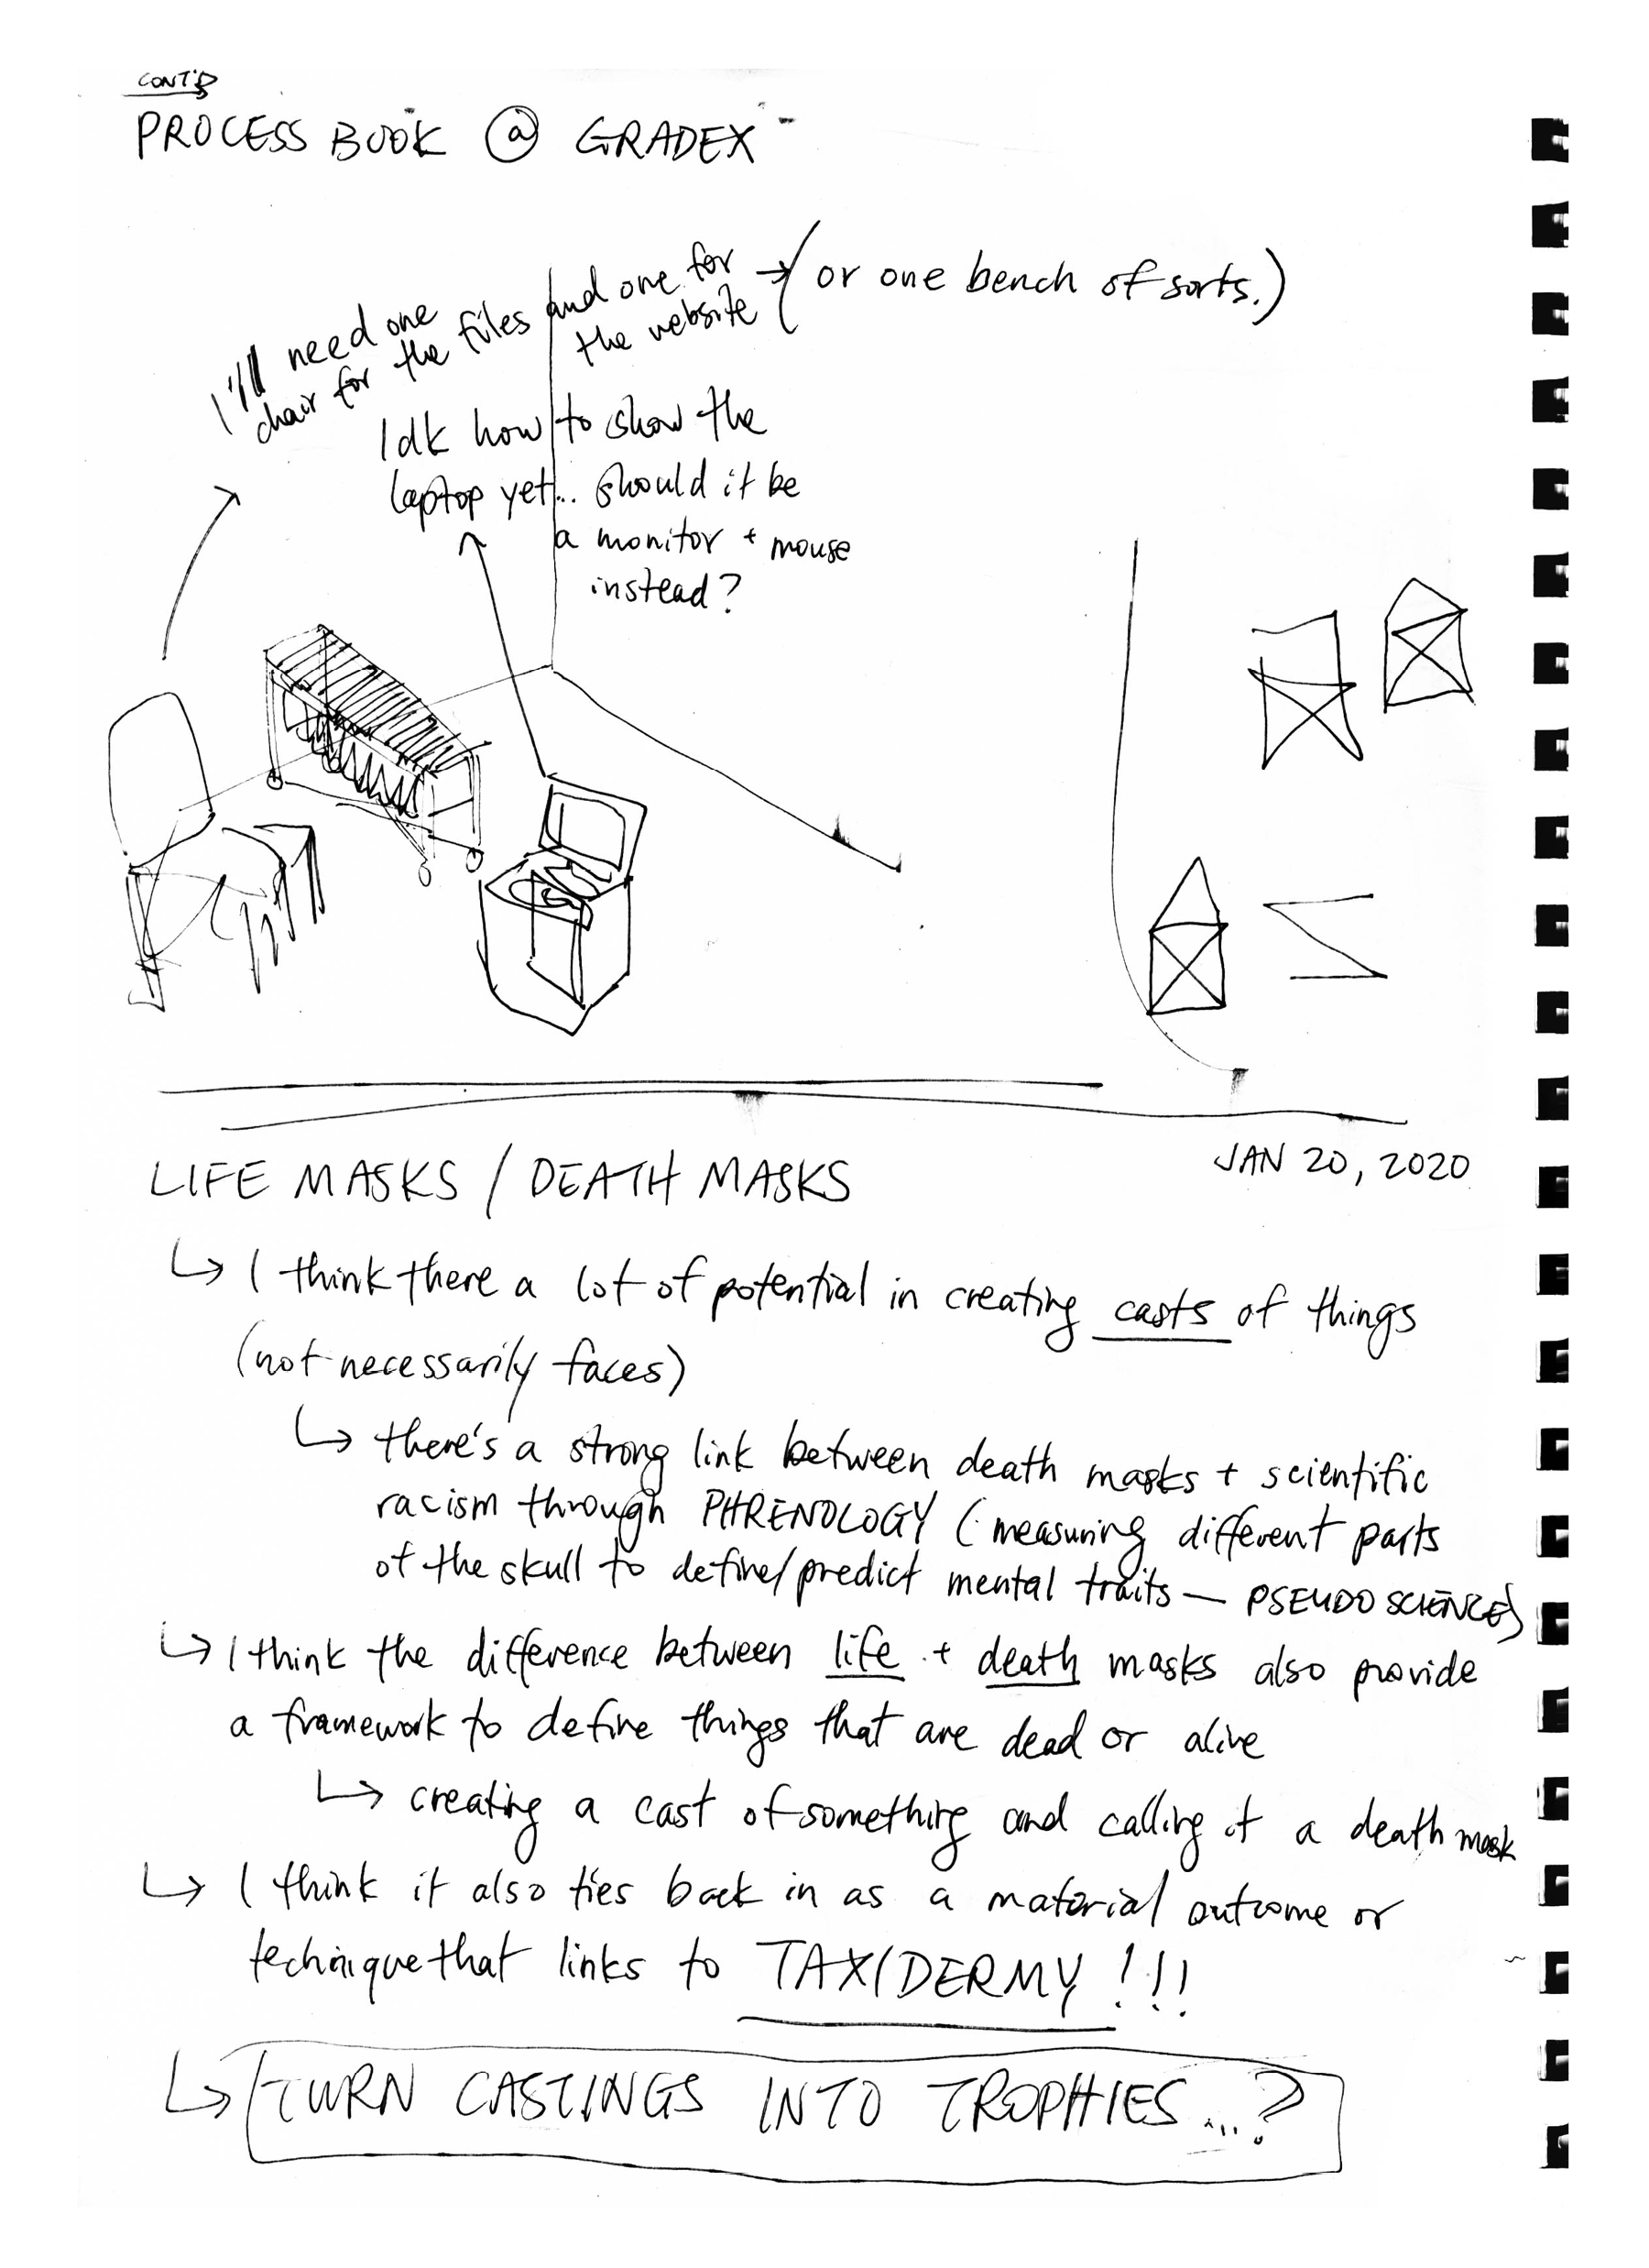 CONT'D
PROCESS BOOK @ GRADEX
I'll need one
chair for the files and one for
the website
→ (or one bench of sorts.)
Idk how to show the
laptop yet... should it be
a monitor + mouse
instead?
LIFE MASKS / DEATH MASKS
JAN 20, 2020
↳ I think there a lot of potential in creating casts of things
(not necessarily faces)
↳ there's a strong link between death masks + scientific
racism through PHRENOLOGY (measuring different parts
of the skull to define/predict mental traits — PSEUDO SCIENCE)
↳ I think the difference between life + death masks also provide
a framework to define things that are dead or alive
↳ creating a cast of something and calling it a death mask
↳ I think it also ties back in as a material outcome or
technique that links to TAXIDERMY!!!
↳ TURN CASTINGS INTO TROPHIES...?